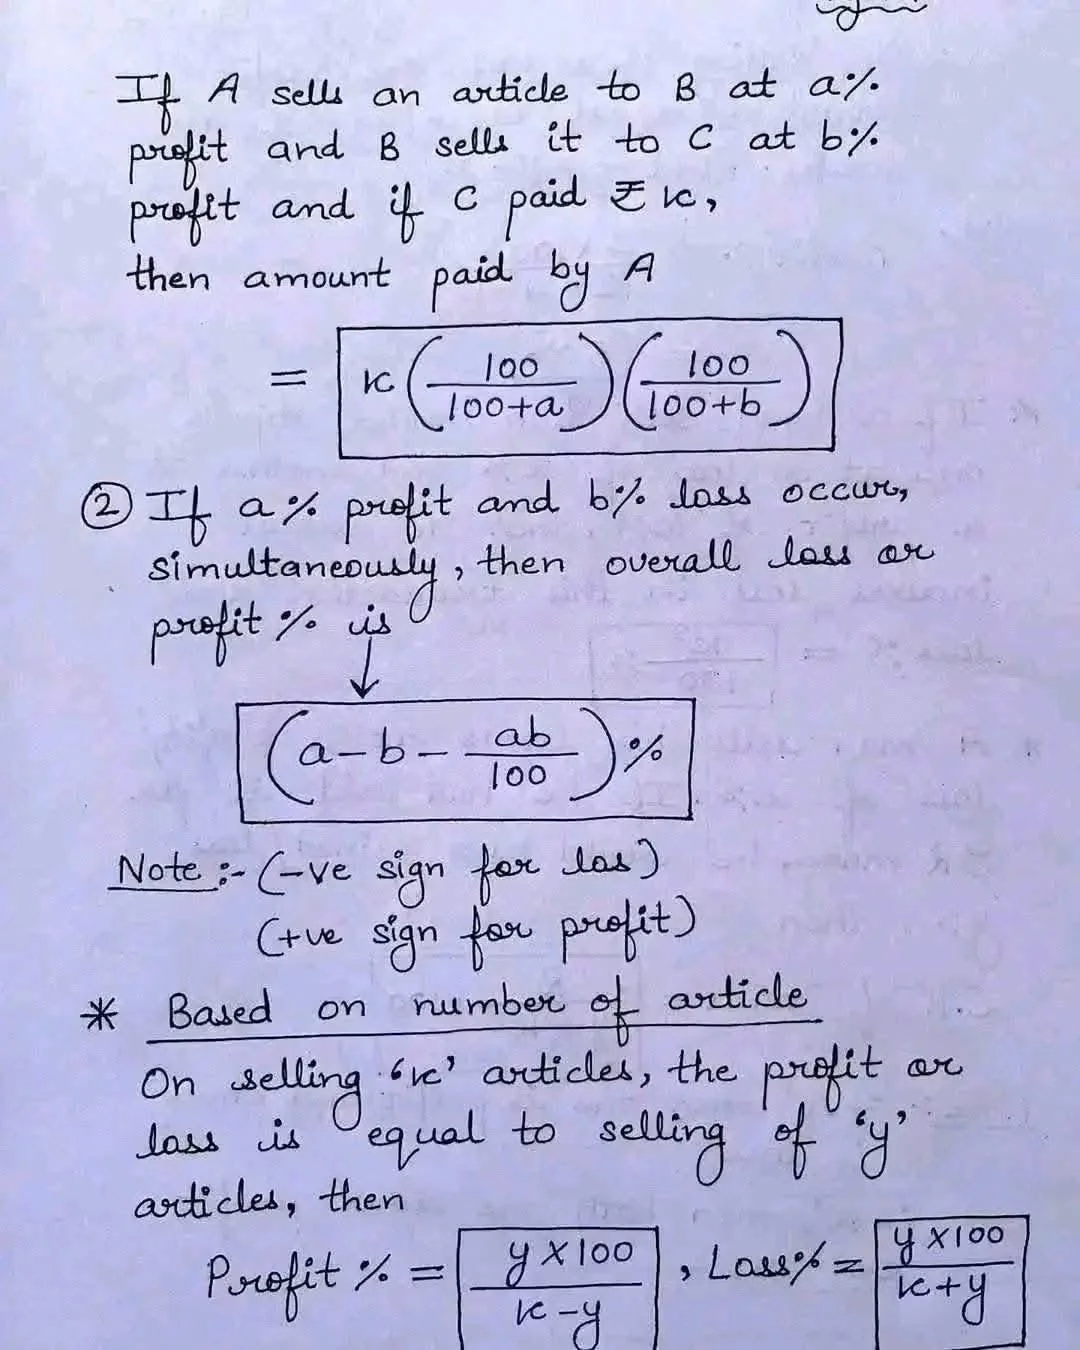 If A sells an article to B at a%
profit and B sells it to C at b%
profit and if C paid ₹ x,
then amount paid by A
= x (100/100+a) (100/100+b)
② If a% profit and b% loss occur,
simultaneously, then overall loss or
profit % is
↓
(a-b- ab/100)%
Note :- (-ve sign for los)
(+ve sign for profit)
* Based on number of article
On selling 'x' articles, the profit or
loss is equal to selling of 'y'
articles, then
Profit % = y×100/x-y , Loss% = y×100/x+y